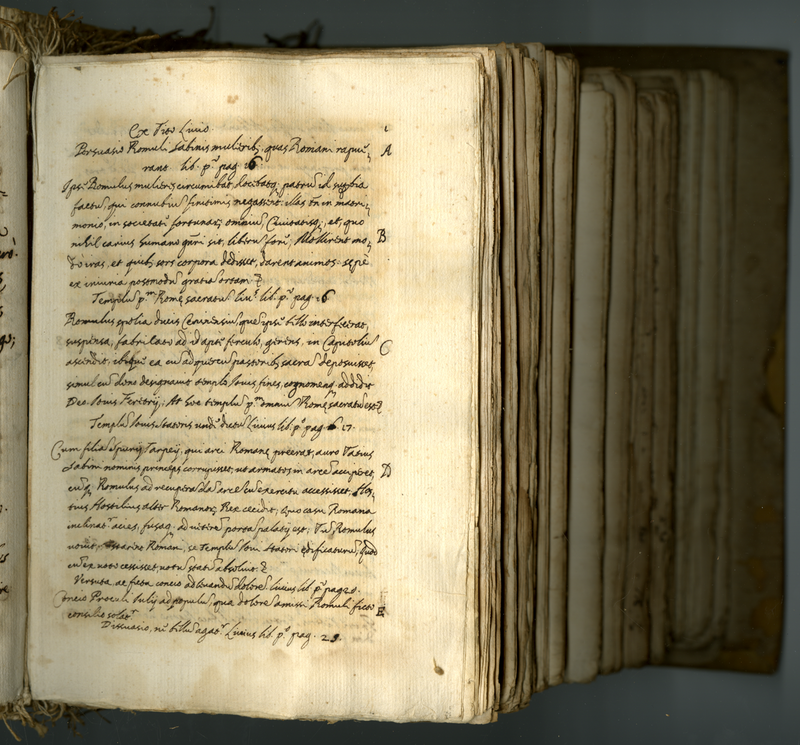 Ex Tito Livio.
Persuasio Romuli Sabinis mulierib; quas Romani rapue A
rant lib. p.º pag. 16
Ipse Romulus mulieres circumibat, docebatq; patrũ id supbia
factũ, qui connubiũ finitimis negassẽt. illas tñ in matri
monio, in societate fortunarũ omniũ, Civitatisq;, et, quo
nihil carius humano gñri sit, liberũ fore; Mollirent mo B
do iras, et quib; sors corpora dedisset, darent animos. sepe
ex iniuria postmodũ gratiã ortam.
Templũ p.m Romę sacratũ Liuiꝰ lib. p.º pag. 16
Romulus spolia ducis Ceninensiũ quẽ ipse bello interfecerat,
suspensa, fabricato ad id apte ferculo, gerens, in Capitoliũ C
ascendit, ibique ea cũ ad quercũ pastorib; sacrã deposuisset,
simul cũ dono designavit templo Jouis fines, cognomenq; addidit
Deo. Jouis Feretrij; At hoc templũ p.m omniũ Romę sacratũ est.
Templũ Jouis statoris undẽ dictũ Liuius lib. p.º pag. 17.
Cum filiã Spurij Tarpeij, qui arci Romanę preerat, auro Tatius
Sabini nominis princeps corrupisset, ut armatos in arcẽ acciperet, D
eũq; Romulus ad recuperãdã arcẽ cũ exercitu accessisset, Hos
tius Hostilius
inclinatʳ acies, fusaq; ad veterẽ portã palatij est; Tũ Romulus
vouit, restarent Romani, se Templũ Joui statori edificaturũ, quod
cũ ex voto cessisset, votũ statĩ absoluit.
Versuta, ac ficta concio ad leuandũ dolorẽ Liuius lib. p.º pag 20.
Concio Proculi Julij ad populũ, qua dolorẽ amissi Romuli ficto E
consilio solatʳ
Dissuasio, ne bellũ agatʳ Liuius lib. p.º pag. 23.